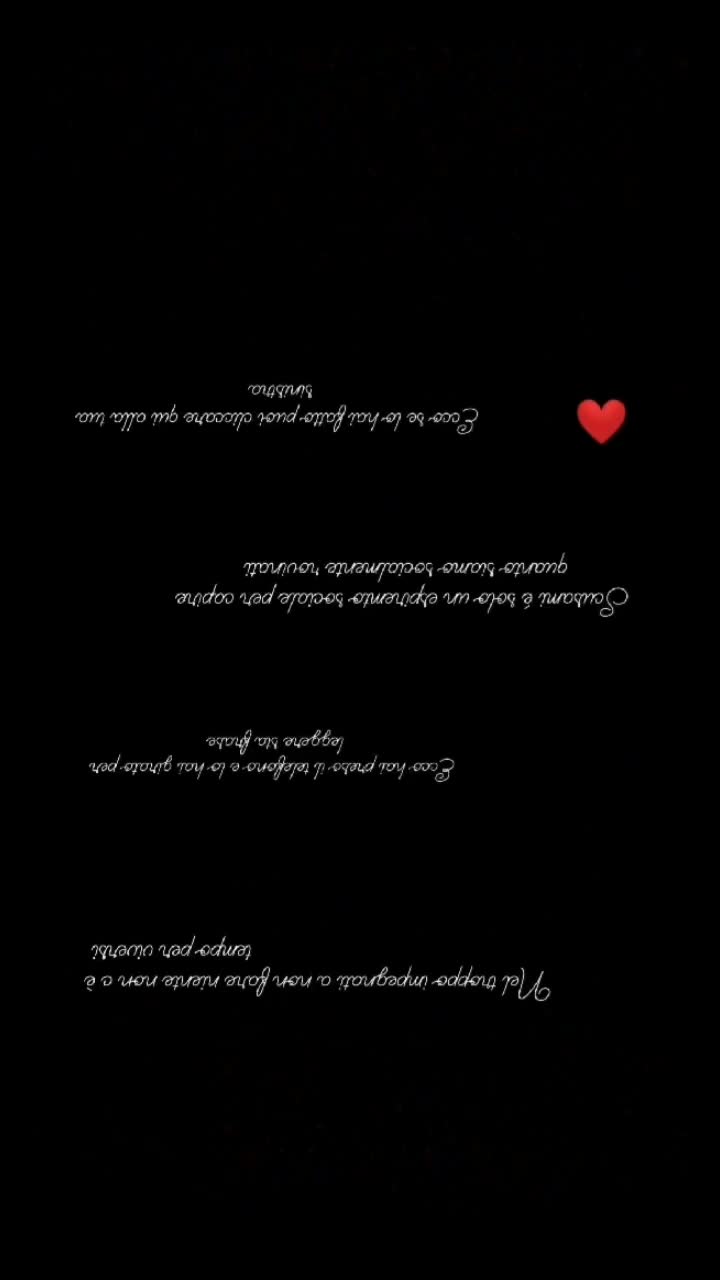 Nel troppo impegnati a non fare niente non c è
tempo per viversi
Ecco hai preso il telefono e lo hai girato per
leggere sta frase
Scusami é solo un espiremto sociale per capire
quanto siamo socialmente rovinati
Ecco se lo hai fatto puoi cliccare qui alla tua
sinistra